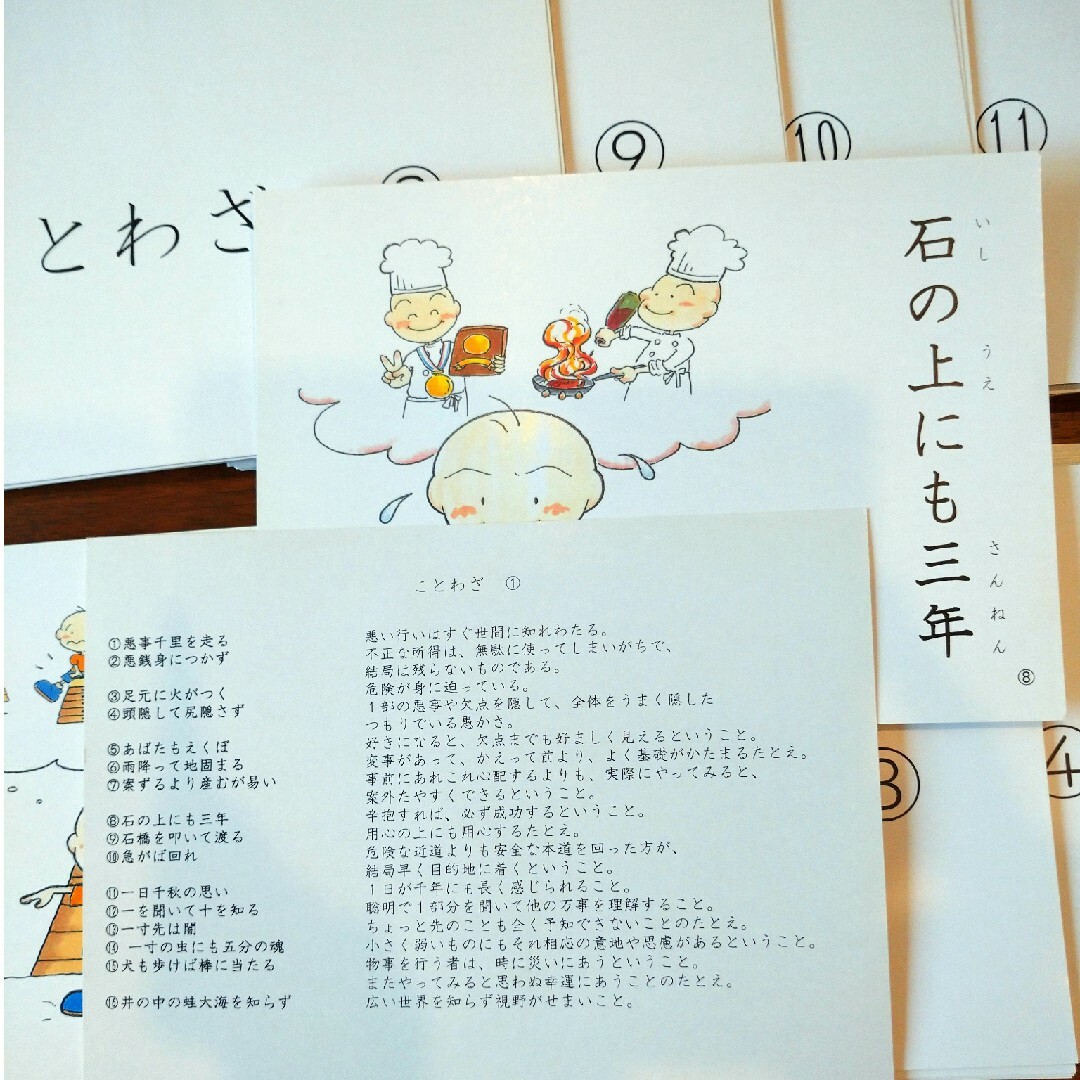 とわざ
⑨
⑩
⑪
石の上にも三年
いし
うえ
さんねん
⑧
ことわざ ①
①悪事千里を走る
悪い行いはすぐ世間に知れわたる。
②悪銭身につかず
不正な所得は、無駄に使ってしまいがちで、
結局は残らないものである。
③足元に火がつく
危険が身に迫っている。
④頭隠して尻隠さず
1部の悪事や欠点を隠して、全体をうまく隠した
つもりでいる愚かさ。
⑤あばたもえくぼ
好きになると、欠点までも好ましく見えるということ。
⑥雨降って地固まる
変事があって、かえって前より、よく基礎がかたまるたとえ。
⑦案ずるより産むが易い
事前にあれこれ心配するよりも、実際にやってみると、
案外たやすくできるということ。
⑧石の上にも三年
辛抱すれば、必ず成功するということ。
⑨石橋を叩いて渡る
用心の上にも用心するたとえ。
⑩急がば回れ
危険な近道よりも安全な本道を回った方が、
結局早く目的地に着くということ。
⑪一日千秋の思い
1日が千年にも長く感じられること。
⑫一を聞いて十を知る
聡明で1部分を聞いて他の万事を理解すること。
⑬一寸先は闇
ちょっと先のことも全く予知できないことのたとえ。
⑭一寸の虫にも五分の魂
小さく弱いものにもそれ相応の意地や思慮があるということ。
⑮犬も歩けば棒に当たる
物事を行う者は、時に災いにあうということ。
またやってみると思わぬ幸運にあうことのたとえ。
⑯井の中の蛙大海を知らず
広い世界を知らず視野がせまいこと。